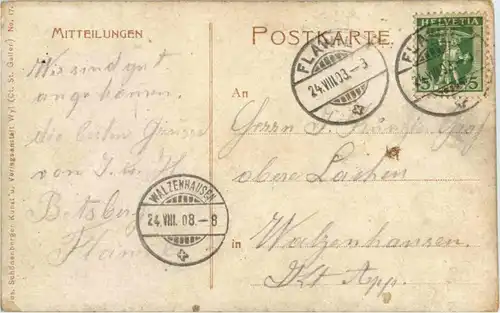 MITTEILUNGEN
POSTKARTE.
HELVETIA
5 5
FLAWIL
24.VIII.08.-3
Wir sind gut
angekommen.
die besten Grüsse
von J. u.
Flawil
WALZENHAUSEN
24.VIII.08.-8
An
Herrn J.
obere Lachen
in Walzenhausen.
Kt. App.
Jos. Schönenberger, Kunst u. Verlagsanstalt Wyl (Ct. St. Gallen) No. 17